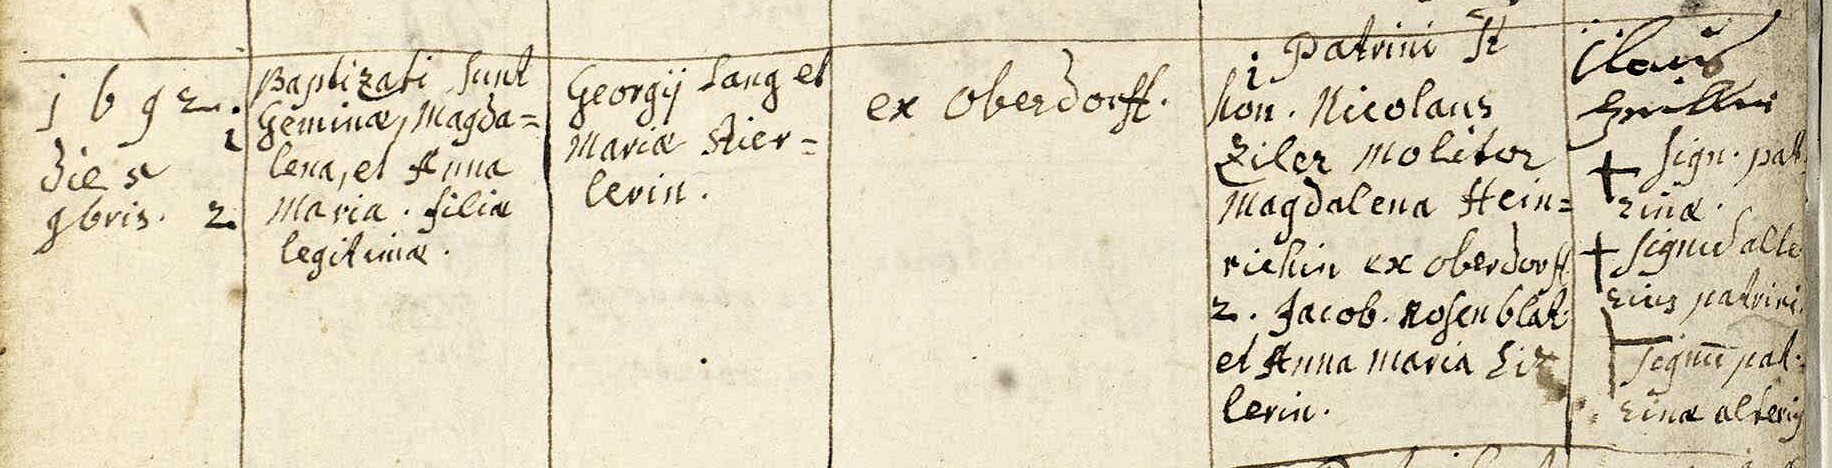 j b 9 2.
dies
9bris.
1
2.
Baptizati sunt
Geminæ, Magda=
lena, et Anna
Maria. filiæ
legitimæ.
Georgij Lang et
Mariæ Stier=
lerin.
ex Oberdorff.
Patrini st
1
hon. Nicolaus
Ziler Molitor
Magdalena Hein=
richin ex oberdorff
2. Jacob. Rosenblat
et Anna Maria Zi
lerin.
+ sign. patt
rinæ.
+ signū alte
rius patrini.
signū pat.
rinæ alterius